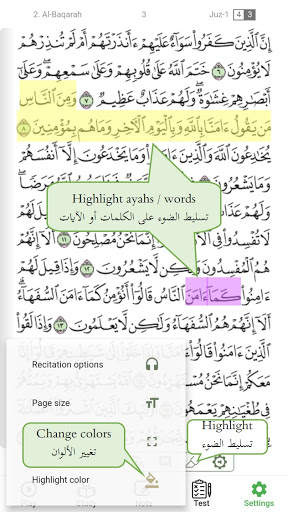 2. Al-Baqarah 3 Juz-1 4 3
إِنَّ ٱلَّذِينَ كَفَرُوا۟ سَوَآءٌ عَلَيْهِمْ ءَأَنذَرْتَهُمْ أَمْ لَمْ تُنذِرْهُمْ
لَا يُؤْمِنُونَ ٦ خَتَمَ ٱللَّهُ عَلَىٰ قُلُوبِهِمْ وَعَلَىٰ سَمْعِهِمْ ۖ وَعَلَىٰٓ
أَبْصَٰرِهِمْ غِشَٰوَةٌ ۖ وَلَهُمْ عَذَابٌ عَظِيمٌ ٧ وَمِنَ ٱلنَّاسِ
مَن يَقُولُ ءَامَنَّا بِٱللَّهِ وَبِٱلْيَوْمِ ٱلْءَاخِرِ وَمَا هُم بِمُؤْمِنِينَ ٨
يُخَٰدِعُونَ ٱللَّهَ وَٱلَّذِينَ ءَامَنُوا۟ وَمَا يَخْدَعُونَ إِلَّآ أَنفُسَهُمْ
وَمَا يَشْعُرُونَ مَرَضًا ۖ
Highlight ayahs / words
تسليط الضوء على الكلمات أو الآيات
وَلَهُمْ عَذَابٌ لَهُمْ
لَا تُفْسِدُوا۟ فِى ١١ أَلَآ إِنَّهُمْ
هُمُ ٱلْمُفْسِدُونَ وَلَٰكِن لَّا يَشْعُرُونَ ١٢ وَإِذَا قِيلَ لَهُمْ
ءَامِنُوا۟ كَمَآ ءَامَنَ ٱلنَّاسُ قَالُوٓا۟ أَنُؤْمِنُ كَمَآ ءَامَنَ ٱلسُّفَهَآءُ ۗ
أَلَآ إِنَّهُمْ هُمُ ٱلسُّفَهَآءُ وَلَٰكِن لَّا يَعْلَمُونَ ١٣ وَإِذَا لَقُوا۟
ٱلَّذِينَ ءَامَنُوا۟ قَالُوٓا۟
مَعَكُمْ إِنَّمَا نَحْنُ
فِى طُغْيَٰنِهِمْ يَعْمَهُونَ
Recitation options
Page size
Change colors
تغيير الألوان
Highlight
تسليط الضوء
Highlight color
Test Settings